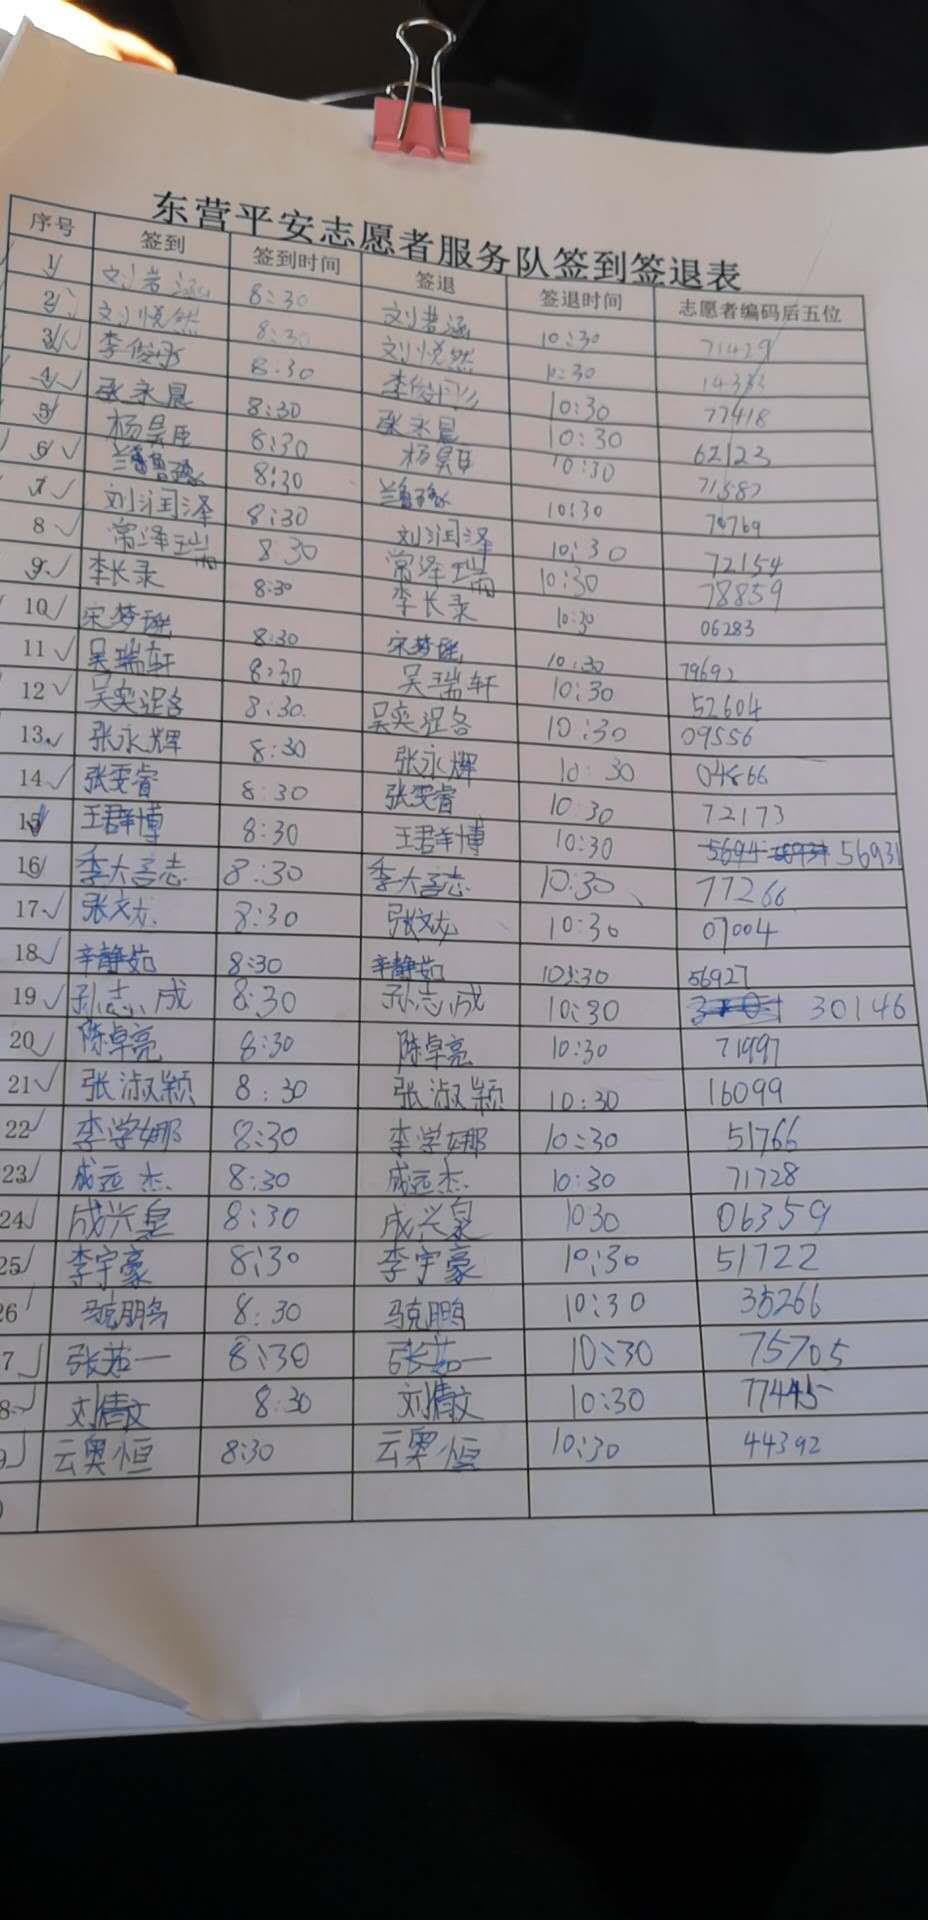 东营平安志愿者服务队签到签退表
序号 签到 签到时间 签退 签退时间 志愿者编码后五位
1 刘若涵 8:30 刘若涵 10:30 71429
2 刘悦然 8:30 刘悦然 10:30 14333
3 李俊 8:30 李俊 10:30 77418
4 张永晨 8:30 张永晨 10:30 62123
5 杨昊臣 8:30 杨昊臣 10:30 71587
6 8:30 10:30 70769
7 刘润泽 8:30 刘润泽 10:30 72154
8 常泽瑞 8 30 常泽瑞 10:30 78859
9 李长录 8:30 李长录 10:30 06283
10 宋梦瑶 8:30 宋梦瑶 10:30 79692
11 吴瑞轩 8:30 吴瑞轩 10:30 52604
12 吴奕 8:30 吴奕 10:30 09556
13 张永辉 8:30 张永辉 10:30 04866
14 张雯睿 8:30 张雯睿 10:30 72173
15 王君博 8:30 王君博 10:30 56931
16 李大志 8:30 李大志 10:30 77266
17 张文龙 8:30 张文龙 10:30 07004
18 辛静茹 8:30 辛静茹 10:30 56927
19 孙志成 8:30 孙志成 10:30 30146
20 陈卓亮 8:30 陈卓亮 10:30 71997
21 张淑颖 8:30 张淑颖 10:30 16099
22 李学娜 8:30 李学娜 10:30 51766
23 成远杰 8:30 成远杰 10:30 71728
24 成兴泉 8:30 成兴泉 1030 06359
25 李宇豪 8:30 李宇豪 10:30 51722
26 马克鹏 8:30 马克鹏 10:30 35266
7 张茹一 8:30 张茹一 10:30 75705
8 刘倩文 8:30 刘倩文 10:30 77445
9 云奥恒 8:30 云奥恒 10:30 44392